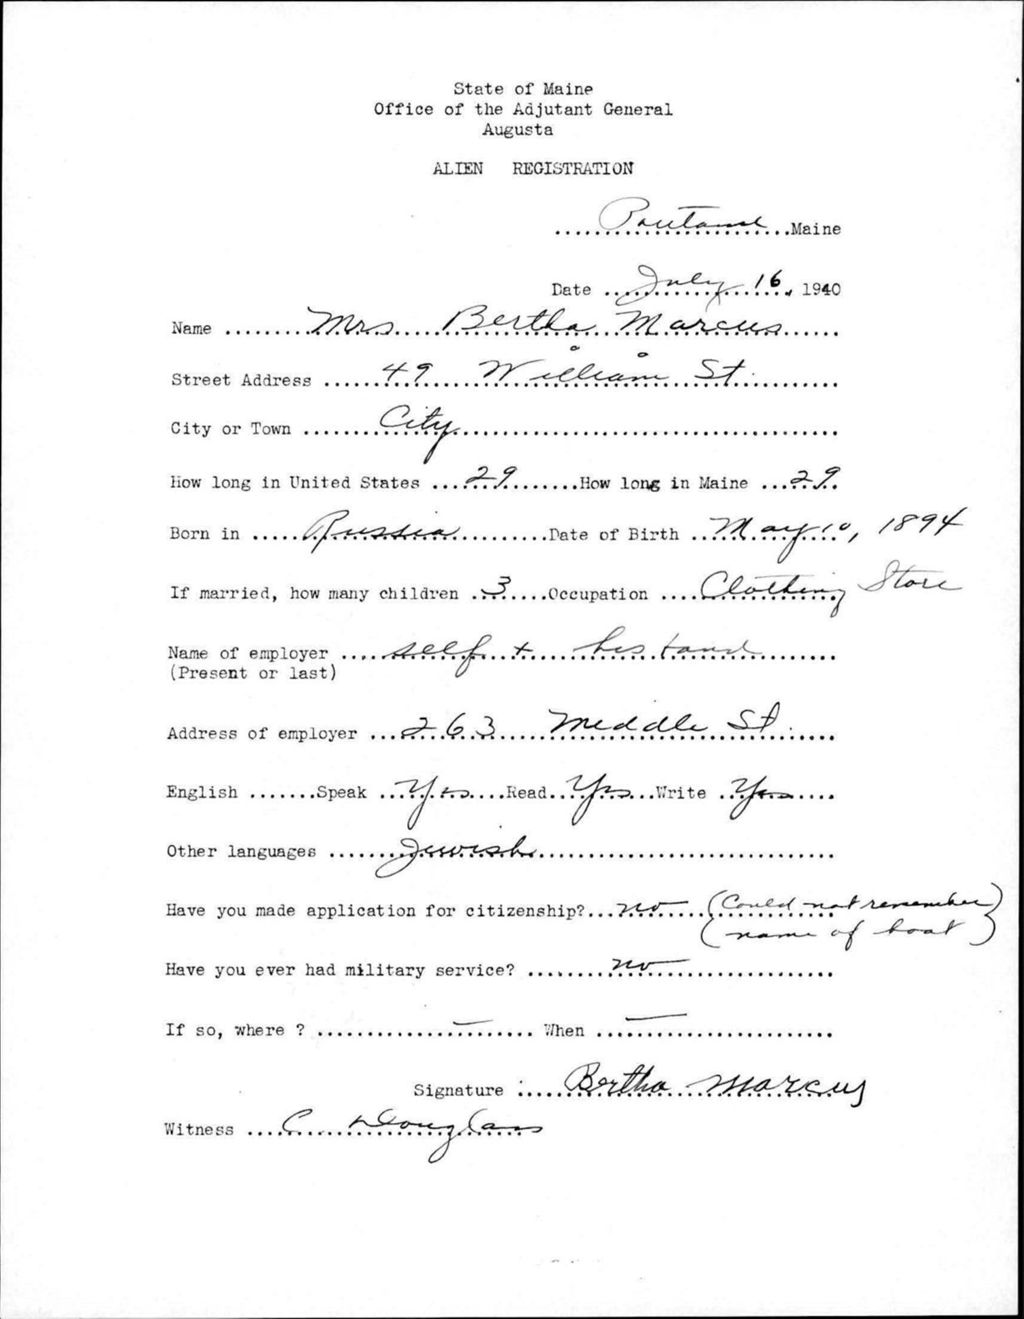 State of Maine
Office of the Adjutant General
Augusta
ALIEN REGISTRATION
Portland Maine
Date July 16, 1940
Name Mrs Bertha Marcus
Street Address 49 William St.
City or Town City
How long in United States 29 How long in Maine 29
Born in Russia Date of Birth May 10, 1894
If married, how many children 3 Occupation Clothing Store
Name of employer self + husband
(Present or last)
Address of employer 263 Middle St.
English Speak Yes Read Yes Write Yes
Other languages Jewish
Have you made application for citizenship? no (Could not remember
name of boat)
Have you ever had military service? no
If so, where ? — When —
Signature : Bertha Marcus
Witness C. Douglass